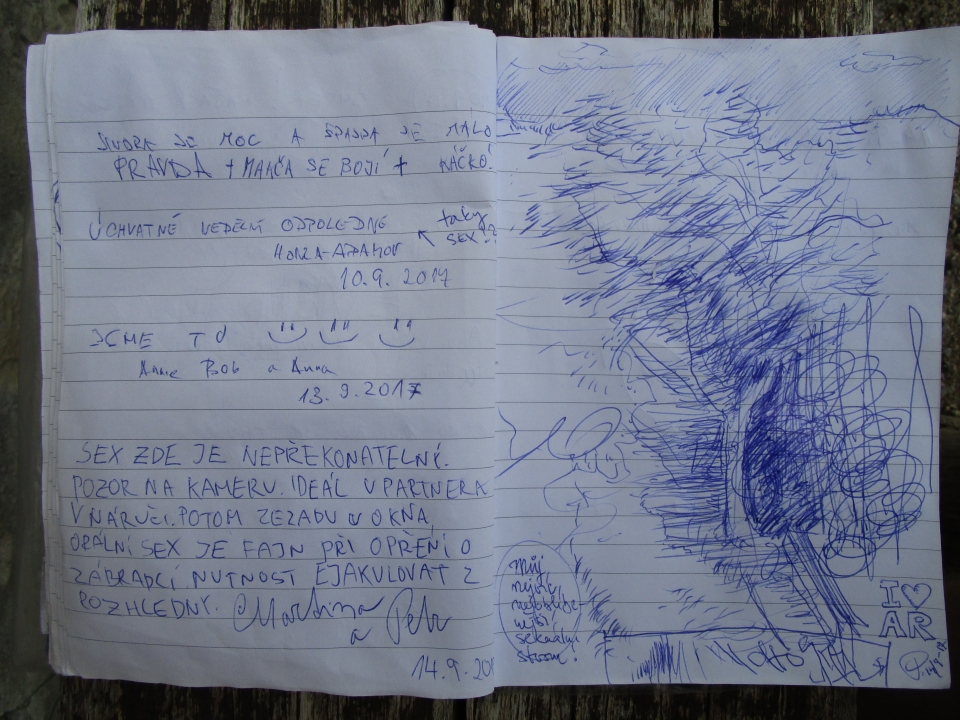 JE MOC A ŠPAJDA JE MÁLO
PRAVDA + MAKČA SE BOJÍ + KÁČKO!
ÚCHVATNÉ NEDĚLNÍ ODPOLEDNE
taky
SEX!?
HONZA
10.9.2017
JSME TU
Annie Bob a Anna
13.9.2017
SEX ZDE JE NEPŘEKONATELNÝ.
POZOR NA KAMERU. IDEÁL U PARTNERA
V NÁRUČI. POTOM ZEZADU U OKNA,
ORÁLNÍ SEX JE FAJN PŘI OPŘENÍ O
ZÁBRADLÍ. NUTNOST EJAKULOVAT Z
ROZHLEDNY. Martina
a Petr
14.9.201
Můj
sexuální
strom!
I ♡
AR